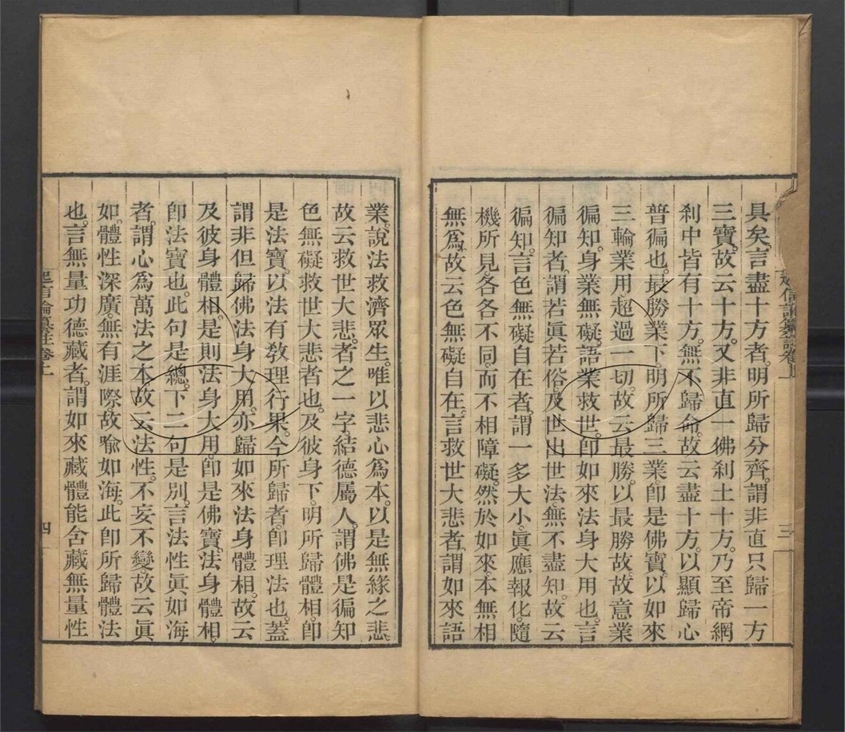 具矣。言盡十方者。明所歸分齊。謂非直只歸一方
三寶。故云十方。又非直一佛刹土十方。乃至帝網
刹中皆有十方。無不歸命。故云盡十方。以顯歸心
普徧也。最勝業下。明所歸三業。卽是佛寶。以如來
三輪業用。超過一切。故云最勝。以最勝故。故意業
徧知。身業無礙。語業救世。卽如來法身大用也。言
徧知者。謂若眞若俗。及世出世法。無不盡知。故云
徧知。言色無礙自在者。謂一多大小。眞應報化。隨
機所見。各各不同。而不相障礙。然於如來本無相
無爲。故云色無礙自在。言救世大悲者。謂如來語
三
業。說法救濟眾生。唯以悲心爲本。以是無緣之悲。
故云救世大悲。者之一字。結德屬人。謂佛是徧知
色無礙救世大悲者也。及彼身下。明所歸體相。卽
是法寶。以法有敎理行果。今所歸者。卽理法也。蓋
謂非但歸佛法身大用。亦歸如來法身體相。故云
及彼身體相。是則法身大用。卽是佛寶。法身體相。
卽法寶也。此句是總。下二句是別。言法性眞如海
者。謂心爲萬法之本。故云法性。不妄不變。故云眞
如。體性深廣。無有涯際。故喩如海。此卽所歸體法
也。言無量功德藏者。謂如來藏體。能含藏無量性
起信論纂註卷上
四